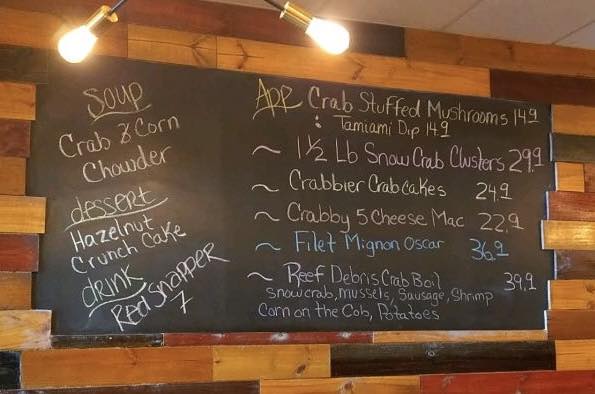 Soup
Crab & Corn
Chowder
dessert
Hazelnut
Crunch Cake
drink
Red Snapper
7
App Crab Stuffed Mushrooms 14.9
: Tamiami Dip 14.9
~ 1 1/2 Lb Snow Crab Clusters 29.9
~ Crabbier Crabcakes 24.9
~ Crabby 5 Cheese Mac 22.9
~ Filet Mignon Oscar 36.9
~ Reef Debris Crab Boil 39.9
Snow crab, mussels, Sausage, Shrimp
Corn on the Cob, Potatoes